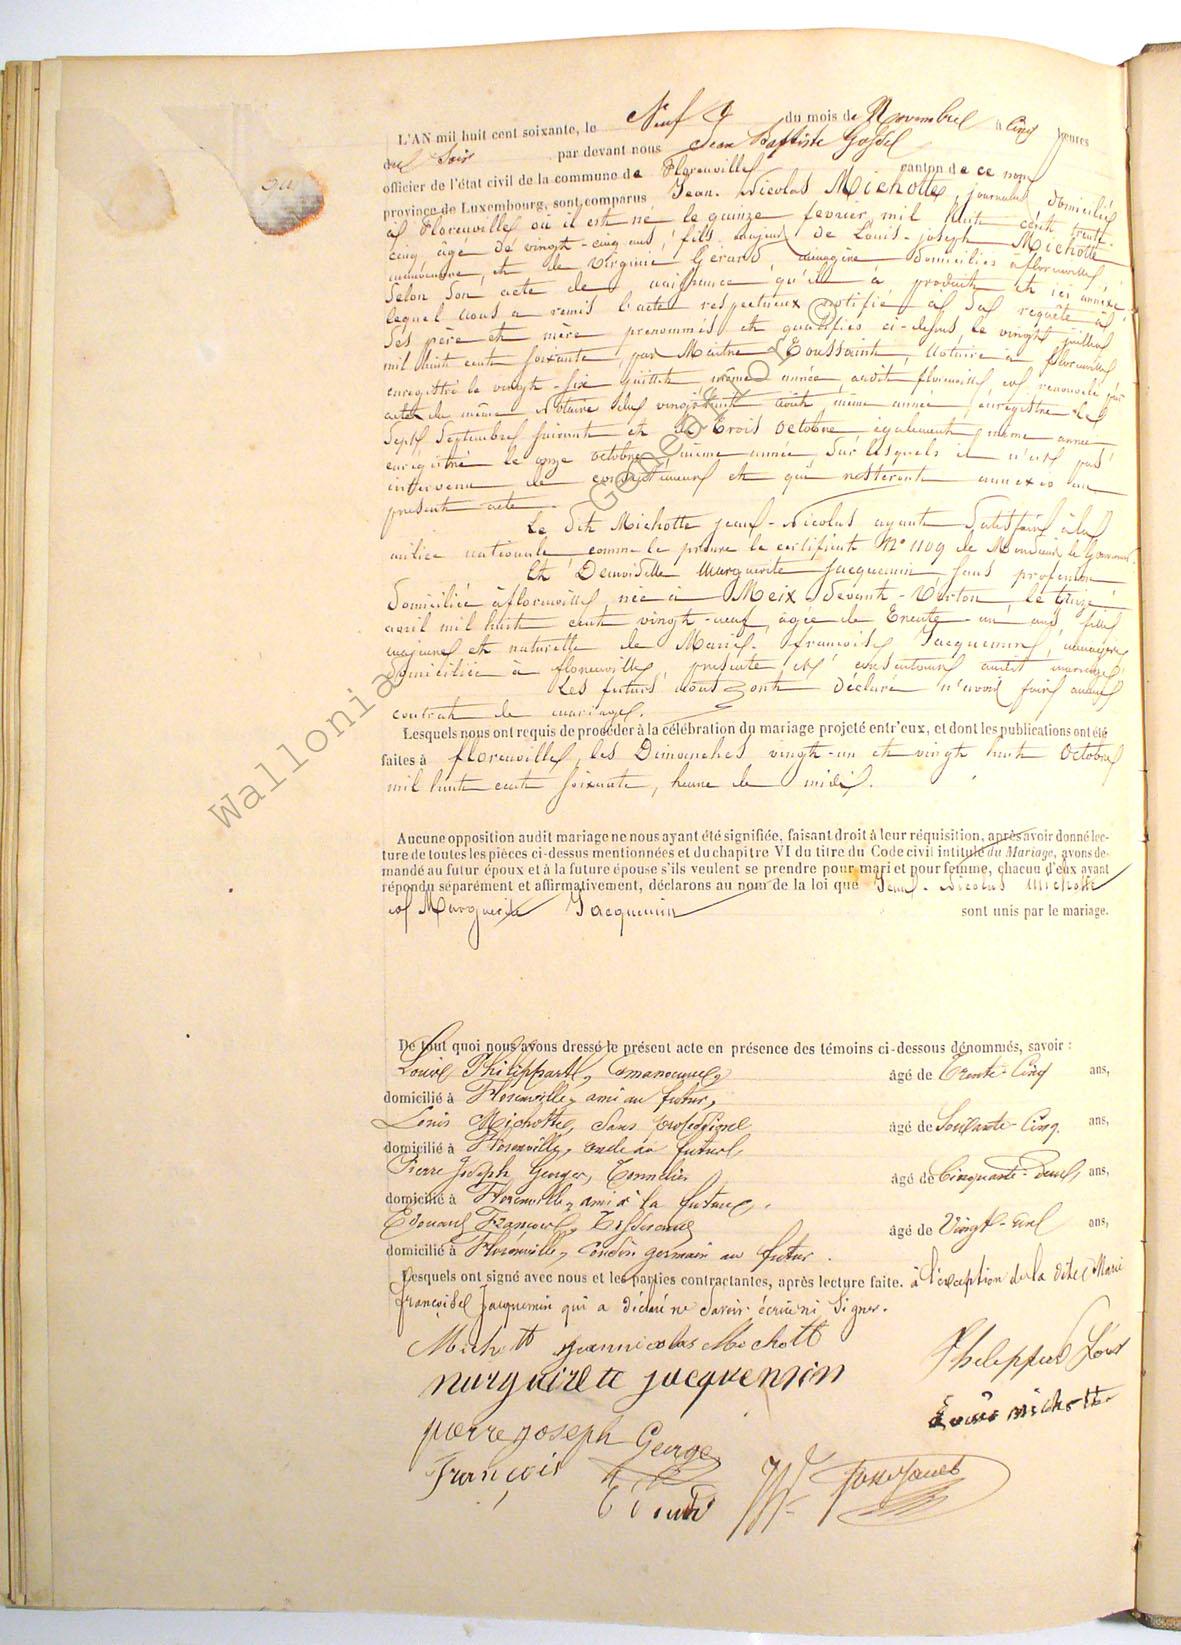 L'AN mil huit cent soixante, le Neuf 9 du mois de Novembre à Cinq heures
du Soir par devant nous Jean Baptiste
officier de l'état civil de la commune de Florenville canton de ce nom
province de Luxembourg, sont comparus Jean-Nicolas Michotte, journalier domicilié
à Florenville où il est né le quinze fevrier mil huit cent trente
cinq, âgé de vingt-cinq ans, fils majeur de Louis-joseph Michotte
manoeuvre, et de Virginie Gerard, menagère domiciliés à florenville,
Selon Son acte de naissance qu'il a produit et ici annexé
lequel nous a remis l'acte respectueux notifié à Sa requête à
Ses père et mère prenommés et qualifiés ci-dessus, le vingt juillet
mil huit cent soixante, par Maitre Toussaint, Notaire à florenville
enregistré le vingt-six juillet, même année audit florenville, et renouvelé par
acte du même Notaire du vingt huit août même année, enregistré le
Sept Septembre Suivant et le Trois Octobre également même année
enregistré le onze octobre même année, Sur lesquels il n'est pas
intervenu de consentement et qui resteront annexés au
présent acte.
Le dit Michotte jean-Nicolas ayant Satisfait à la
milice nationale comme le prouve le certificat N° 1109 de Monsieur le Gouverneur.
Et Demoiselle Marguerite Jacquemin Sans profession
Domiciliée à florenville, née à Meix-devant-Virton le
avril mil huit cent vingt-neuf, âgée de Trente-un ans fille
majeure et naturelle de Marie-françoise Jacquemin, menagère
domiciliée à florenville, présente et consentante audit mariage,
Les futurs nous ont Déclaré n'avoir fait aucun
contrat de mariage.
Lesquels nous ont requis de procéder à la célébration du mariage projeté entr'eux, et dont les publications ont été
faites à florenville, les Dimanches vingt-un et vingt huit Octobre
mil huit cent soixante, heure de midi.
Aucune opposition audit mariage ne nous ayant été signifiée, faisant droit à leur réquisition, après avoir donné lec-
ture de toutes les pièces ci-dessus mentionnées et du chapitre VI du titre du Code civil intitulé du Mariage, avons de-
mandé au futur époux et à la future épouse s'ils veulent se prendre pour mari et pour femme, chacun d'eux ayant
répondu séparément et affirmativement, déclarons au nom de la loi que Jean-Nicolas Michotte
et Marguerite Jacquemin sont unis par le mariage.
De tout quoi nous avons dressé le présent acte en présence des témoins ci-dessous dénommés, savoir :
Louis Philippart, manoeuvre, âgé de Trente-Cinq ans,
domicilié à Florenville, ami au futur,
Louis Michotte, Sans profession âgé de Soixante-Cinq ans,
domicilié à Florenville, oncle au futur,
Pierre Joseph George, Tonnelier âgé de Cinquante-deux, ans,
domicilié à Florenville, ami à la future,
Edouard François, Tisserand âgé de Vingt-un ans,
domicilié à Florenville, Cousin germain au futur.
Lesquels ont signé avec nous et les parties contractantes, après lecture faite. à l'exception de la dite Marie
françoise Jacquemin qui a déclaré ne Savoir écrire ni Signer.
Michott jeannicolas Michott
Philippart Louis
marguirite jacquemin
Louis michotte
pierre joseph George
François
Edouard
Wallonia © Geneanet